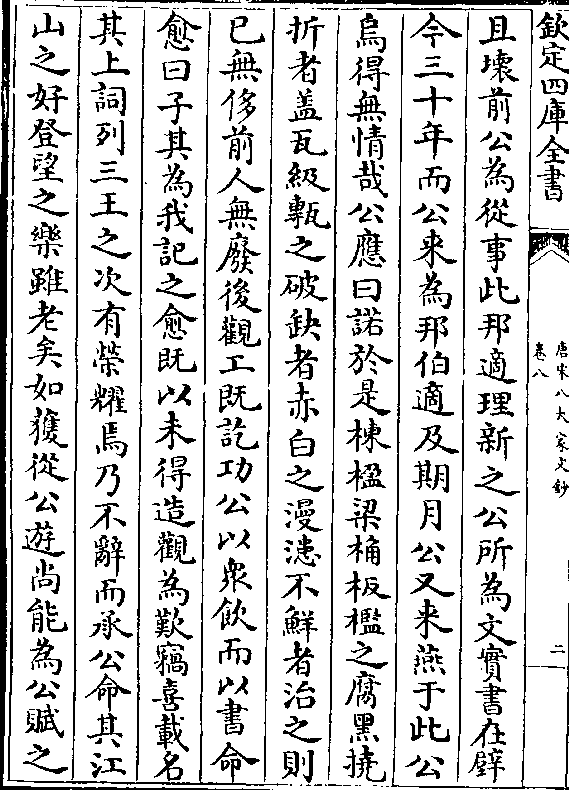 欽定四庫全書
唐宋八大家文鈔
卷八
二
且壞前公為從事此邦適理新之公所為文實書在壁
今三十年而公来為邦伯適及期月公又来燕于此公
烏得無情哉公應曰諾於是棟楹梁桷板檻之腐黑撓
折者盖瓦級甎之破缺者赤白之漫漶不鮮者治之則
已無侈前人無廢後觀工既訖功公以衆飲而以書命
愈曰子其為我記之愈既以未得造觀為歎竊喜載名
其上詞列三王之次有榮耀焉乃不辭而承公命其江
山之好登望之樂雖老矣如獲從公遊尚能為公賦之